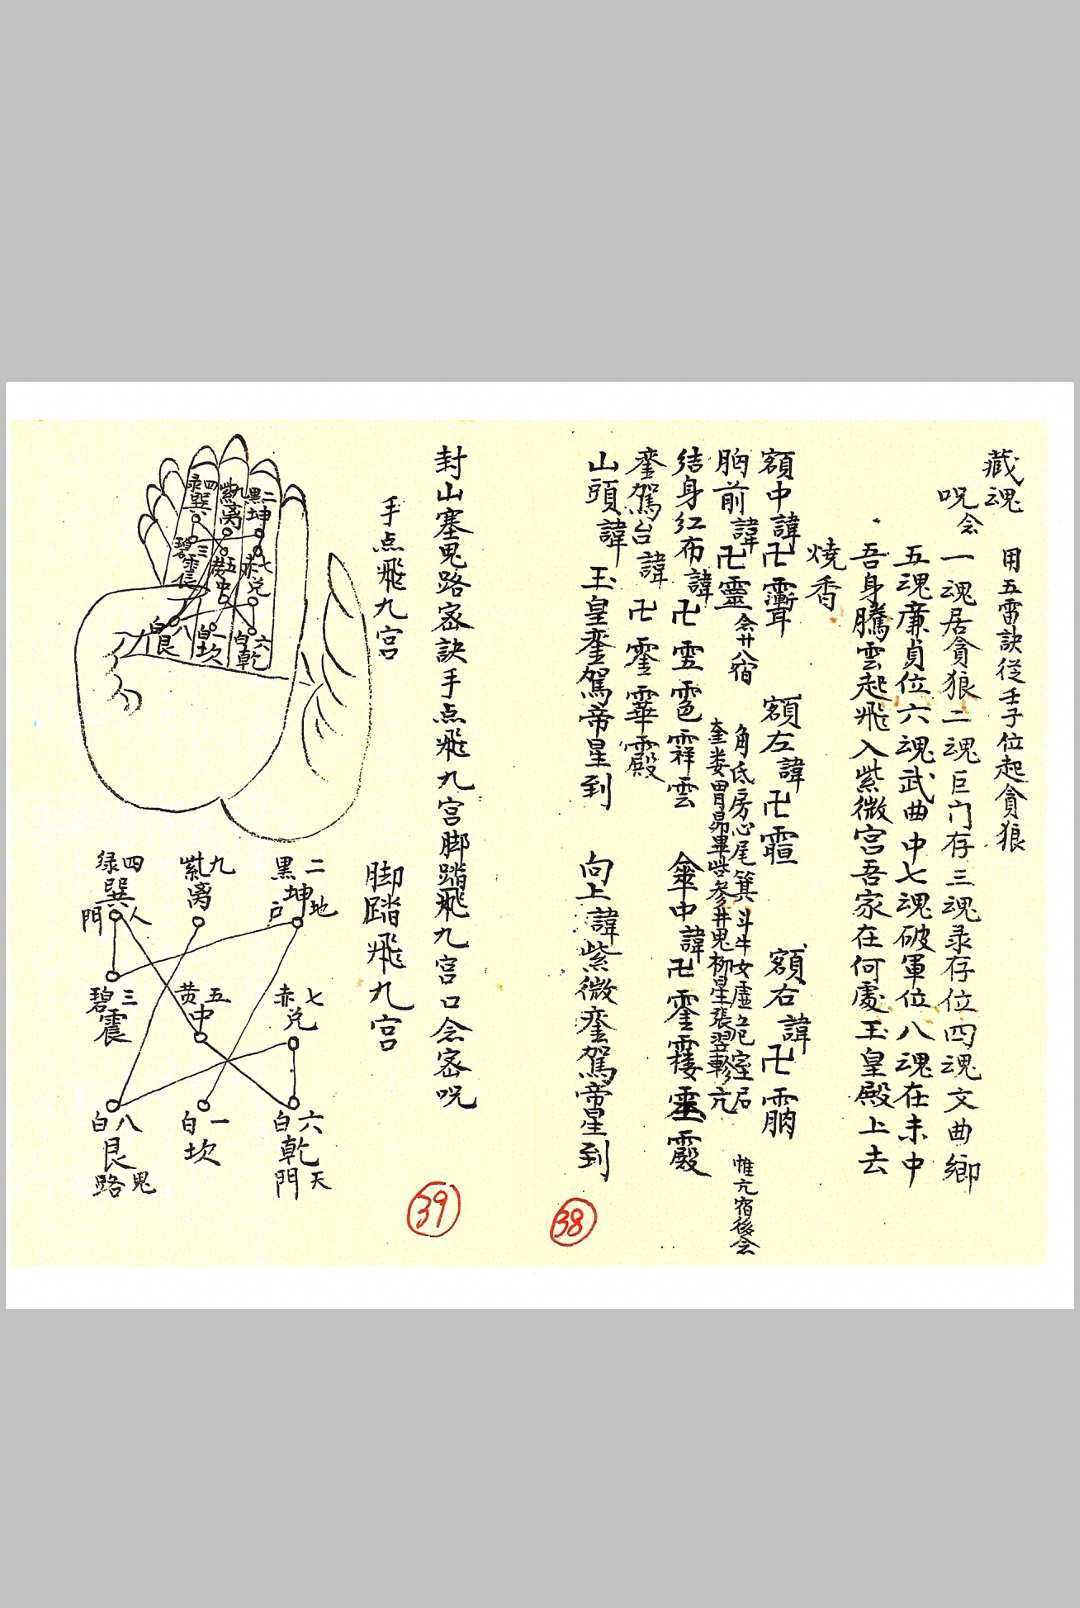 藏魂 用五雷訣從壬子位起貪狼
呪念一魂居貪狼二魂巨门存三魂录存位四魂文曲鄉
五魂廉貞位六魂武曲中七魂破軍位八魂在未中
吾身騰雲起飛入紫微宮吾家在何處玉皇殿上去
燒香
額中諱卍 額左諱卍 額右諱卍
胸前諱卍靈 念廿八宿
角氐房心尾箕斗牛女虛危室 惟亢宿後念
奎娄胃昴畢觜參井鬼柳星張翌軫亢
結身红布諱卍 傘中諱卍
鸾駕台諱卍
山頭諱玉皇鸾駕帝星到 向上諱紫微鸾駕帝星到
38
封山塞鬼路宻訣手点飛九宫脚踏飛九宫口念宻呪
手点飛九宫
脚踏飛九宫
39
二黑坤
九紫离
四绿巽
七赤兑
五黄中
三碧震
六白乾
一白坎
八白艮
二黑坤地户
九紫离
四绿巽人門
七赤兑
五黄中
三碧震
六白乾天門
一白坎
八白艮鬼路